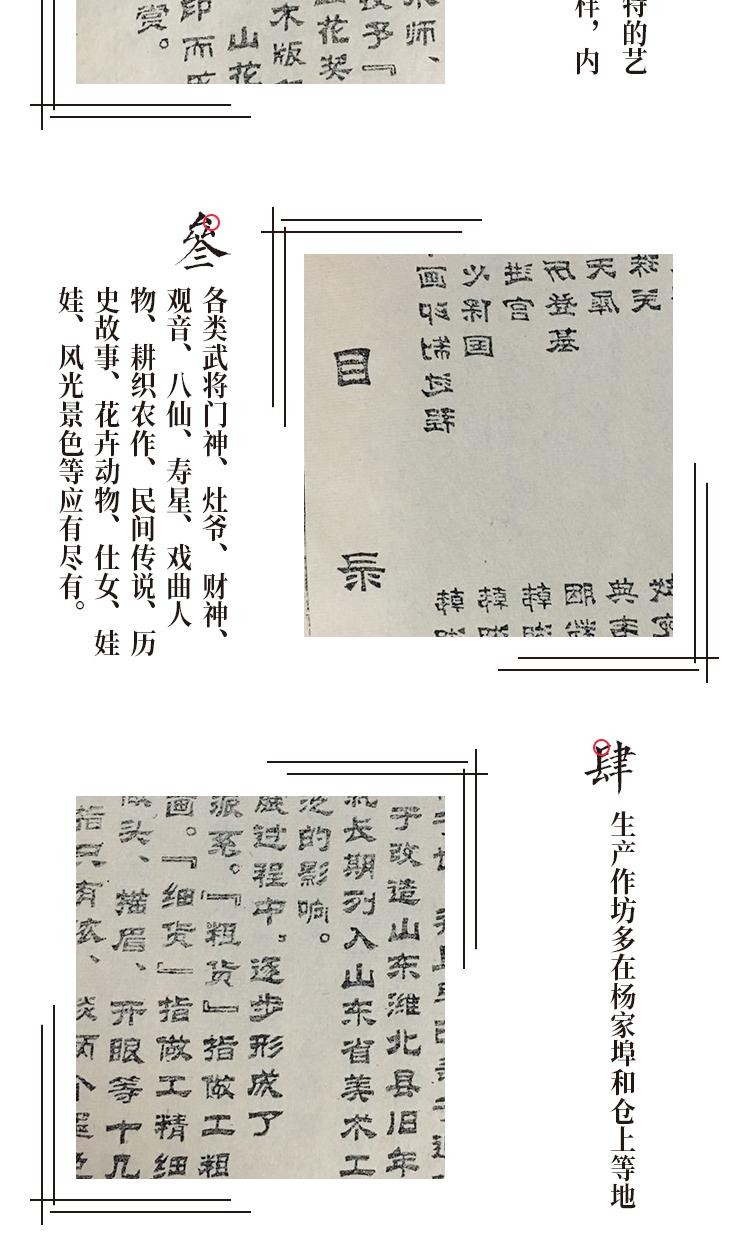 特的艺
样，内
师、
予『
花奖
木版
山花
印而
赏。
叁
各类武将门神、灶爷、财神、
观音、八仙、寿星、戏曲人
物、耕织农作、民间传说、历
史故事、花卉动物、仕女、娃
娃、风光景色等应有尽有。
登基
进宫
火保国
画印制过程
目录
韩
韩
韩
典
肆
生产作坊多在杨家埠和仓上等地
子改造山东潍北县旧年
长期列入山东省美术工
泛的影响。
展过程中，逐步形成了
派系。『粗货』指做工粗
画。『细货』指做工精细
头、描眉、开眼等十几
指只有玄、淡两个墨